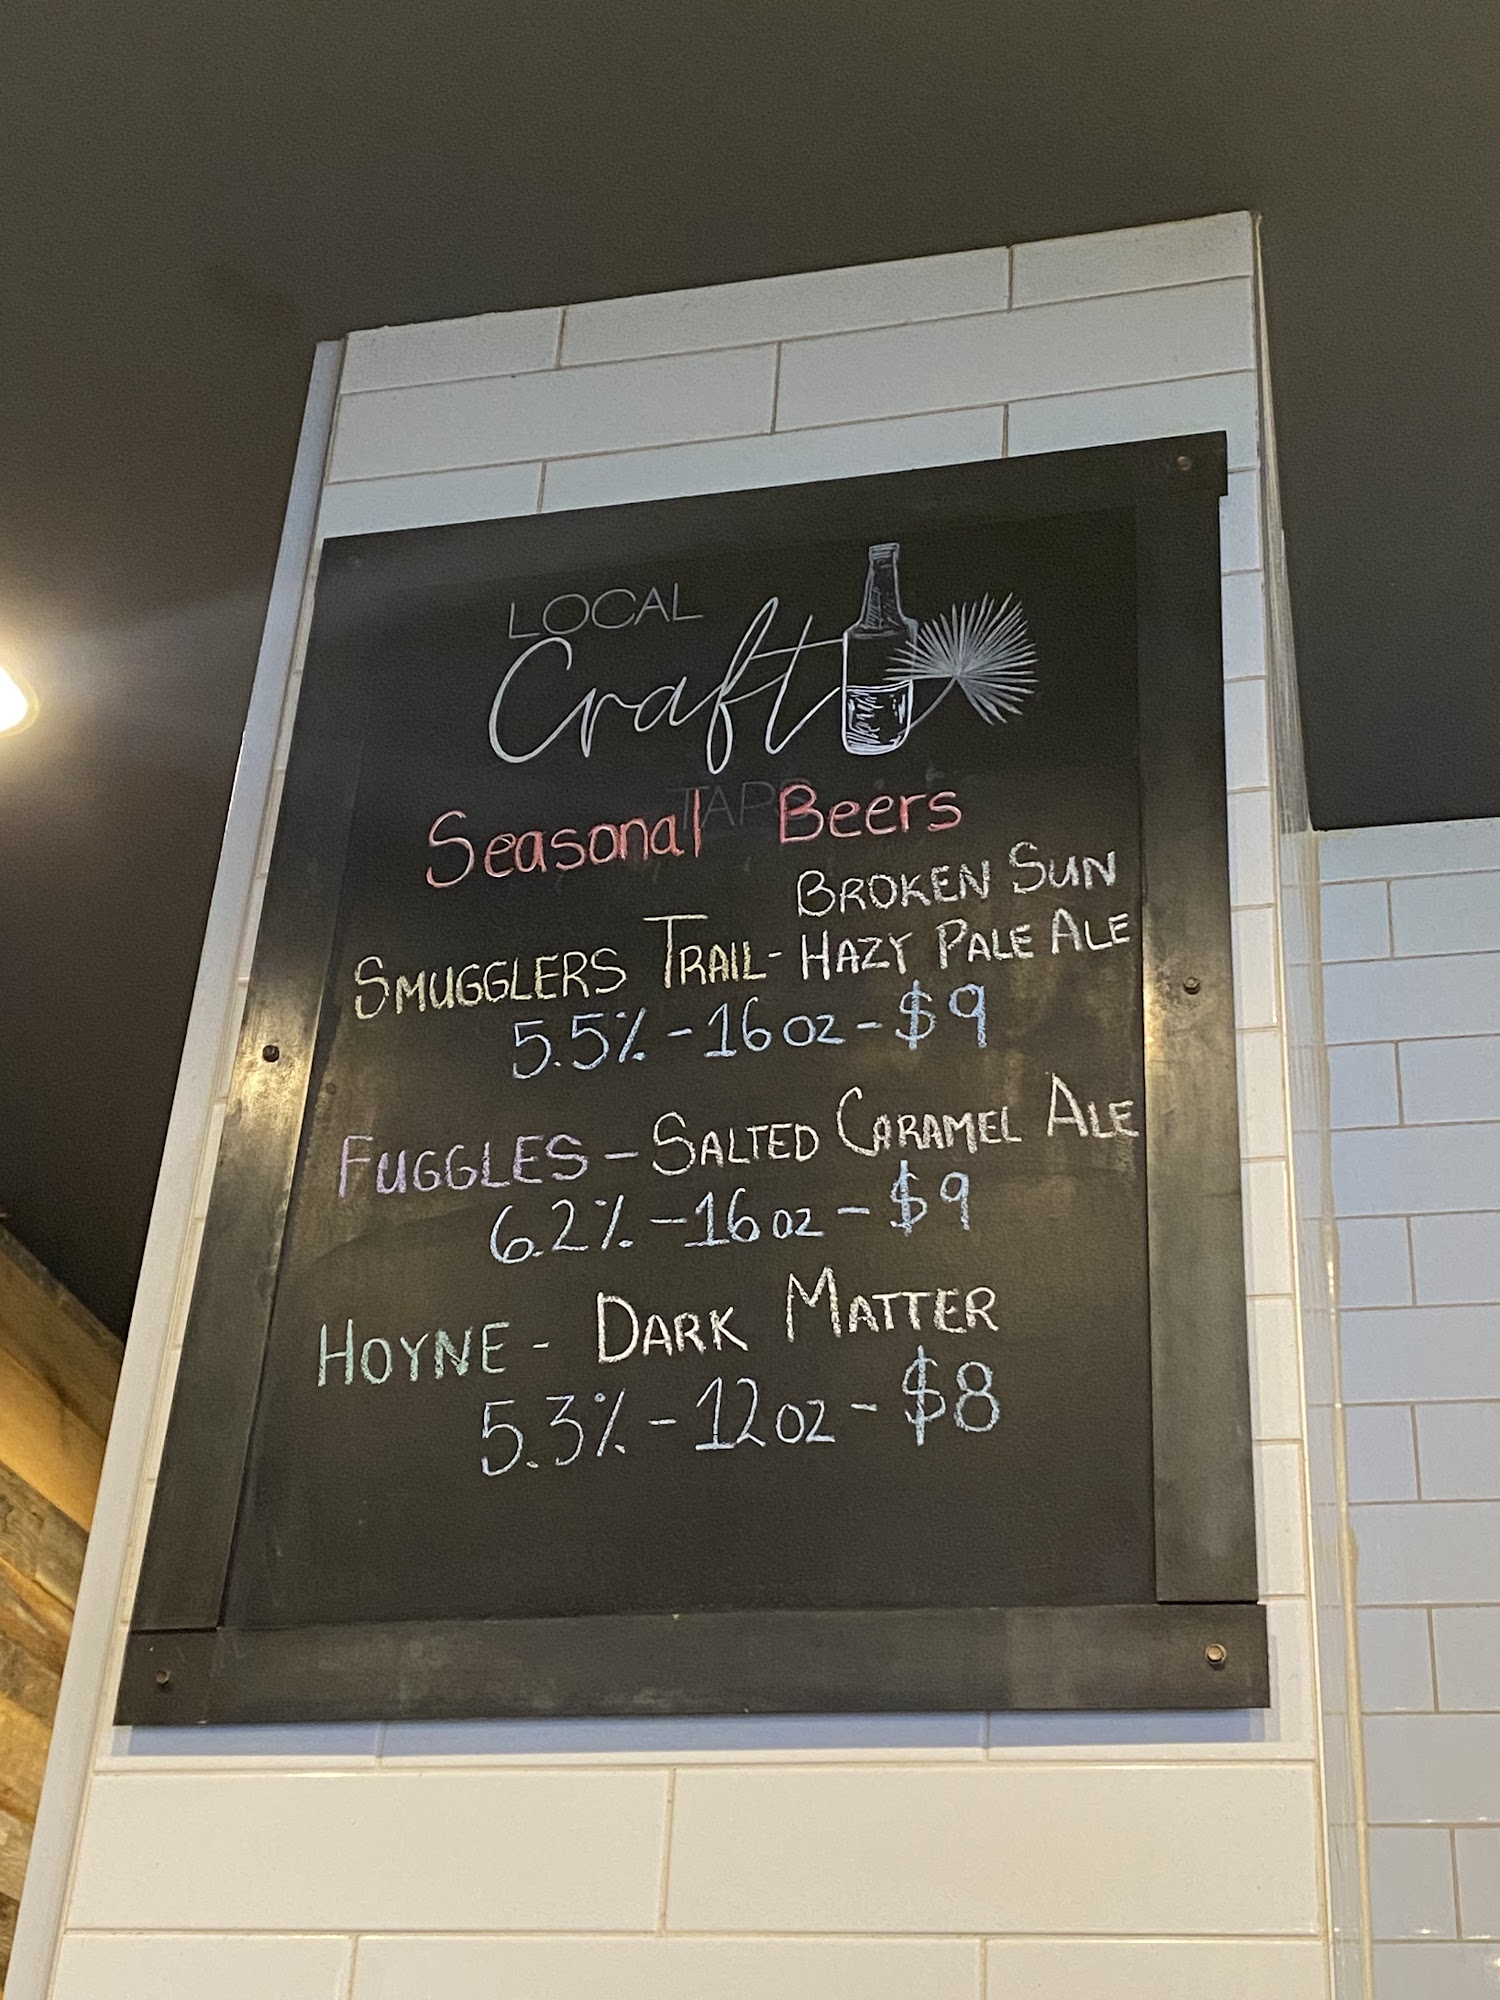 LOCAL
Craft
TAPS
Seasonal Beers
BROKEN SUN
SMUGGLERS TRAIL - HAZY PALE ALE
5.5% - 16 oz - $9
FUGGLES - SALTED CARAMEL ALE
6.2% - 16 oz - $9
HOYNE - DARK MATTER
5.3% - 12 oz - $8